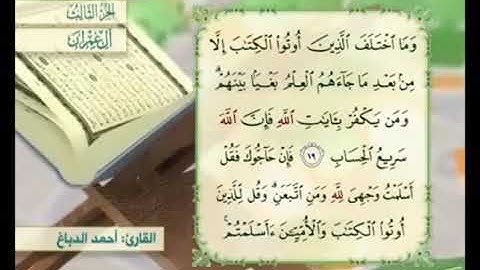 الجزء الثالث
آل عمران
وَمَا ٱخْتَلَفَ ٱلَّذِينَ أُوتُوا۟ ٱلْكِتَٰبَ إِلَّا
مِنۢ بَعْدِ مَا جَآءَهُمُ ٱلْعِلْمُ بَغْيًۢا بَيْنَهُمْ ۗ
وَمَن يَكْفُرْ بِـَٔايَٰتِ ٱللَّهِ فَإِنَّ ٱللَّهَ
سَرِيعُ ٱلْحِسَابِ ١٩ فَإِنْ حَآجُّوكَ فَقُلْ
أَسْلَمْتُ وَجْهِىَ لِلَّهِ وَمَنِ ٱتَّبَعَنِ ۗ وَقُل لِّلَّذِينَ
أُوتُوا۟ ٱلْكِتَٰبَ وَٱلْأُمِّيِّـۧنَ ءَأَسْلَمْتُمْ ۚ
القارئ: أحمد الدباغ